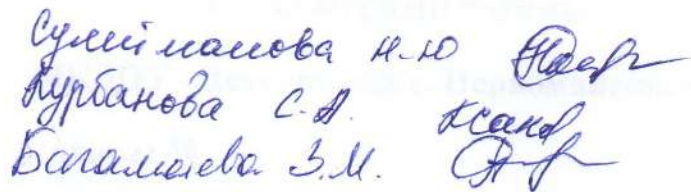 Сулейманова Н-Ю
Курбанова С.А.
Багамаева З.М.